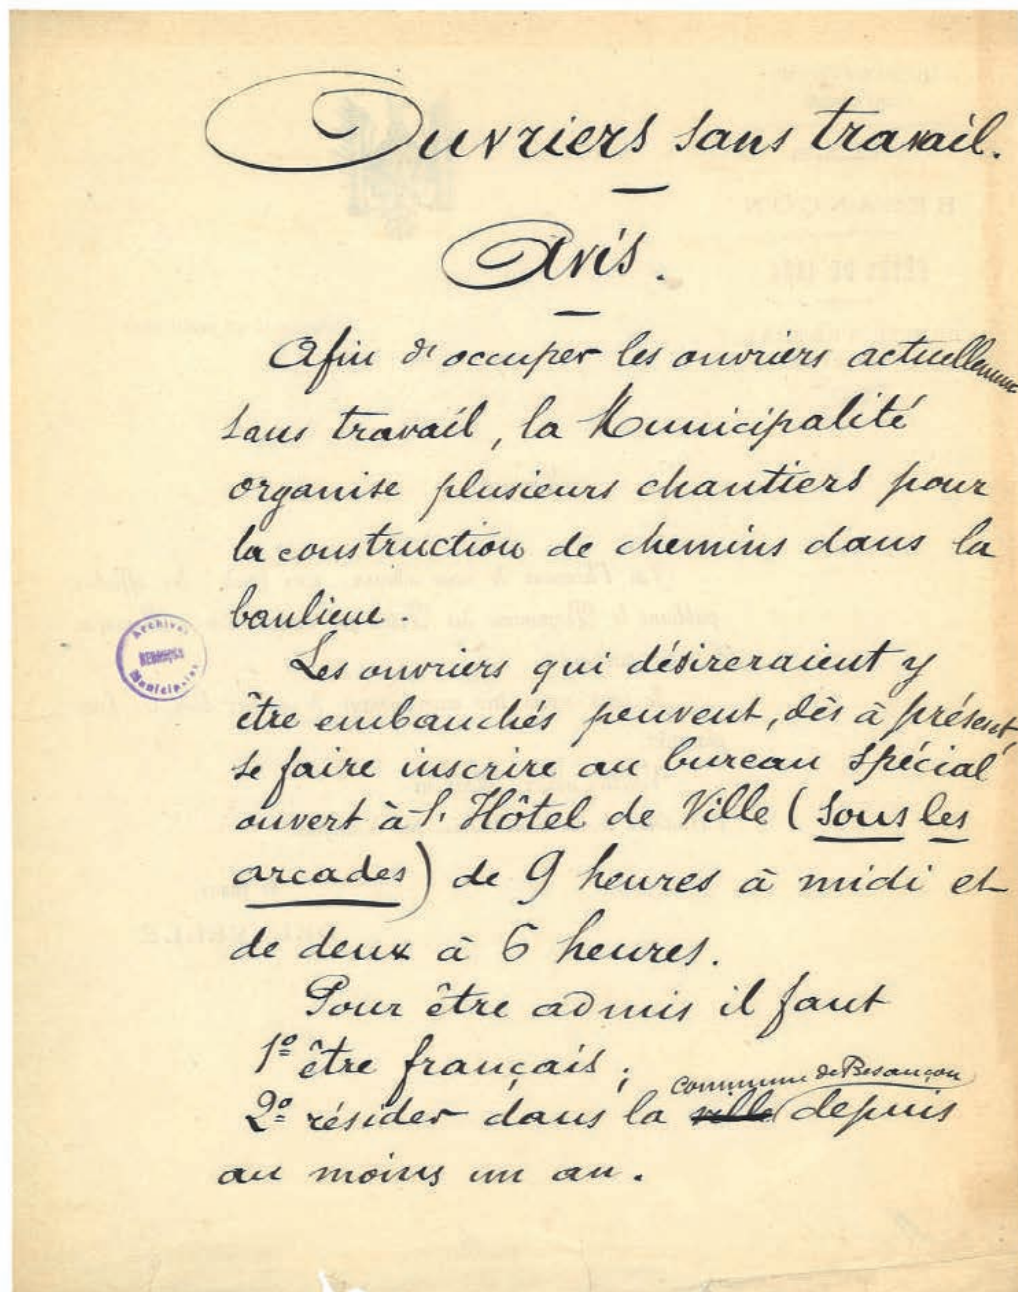 Ouvriers sans travail.
Avis.
Afin d'occuper les ouvriers actuellement
sans travail, la Municipalité
organise plusieurs chantiers pour
la construction de chemins dans la
banlieue.
Les ouvriers qui désireraient y
être embauchés peuvent, dès à présent,
se faire inscrire au bureau spécial
ouvert à l'Hôtel de Ville (sous les
arcades) de 9 heures à midi et
de deux à 6 heures.
Pour être admis il faut
1º être français ;
commune de Besançon
2º résider dans la ville depuis
au moins un an.
Archives
BESANÇON
Municipales